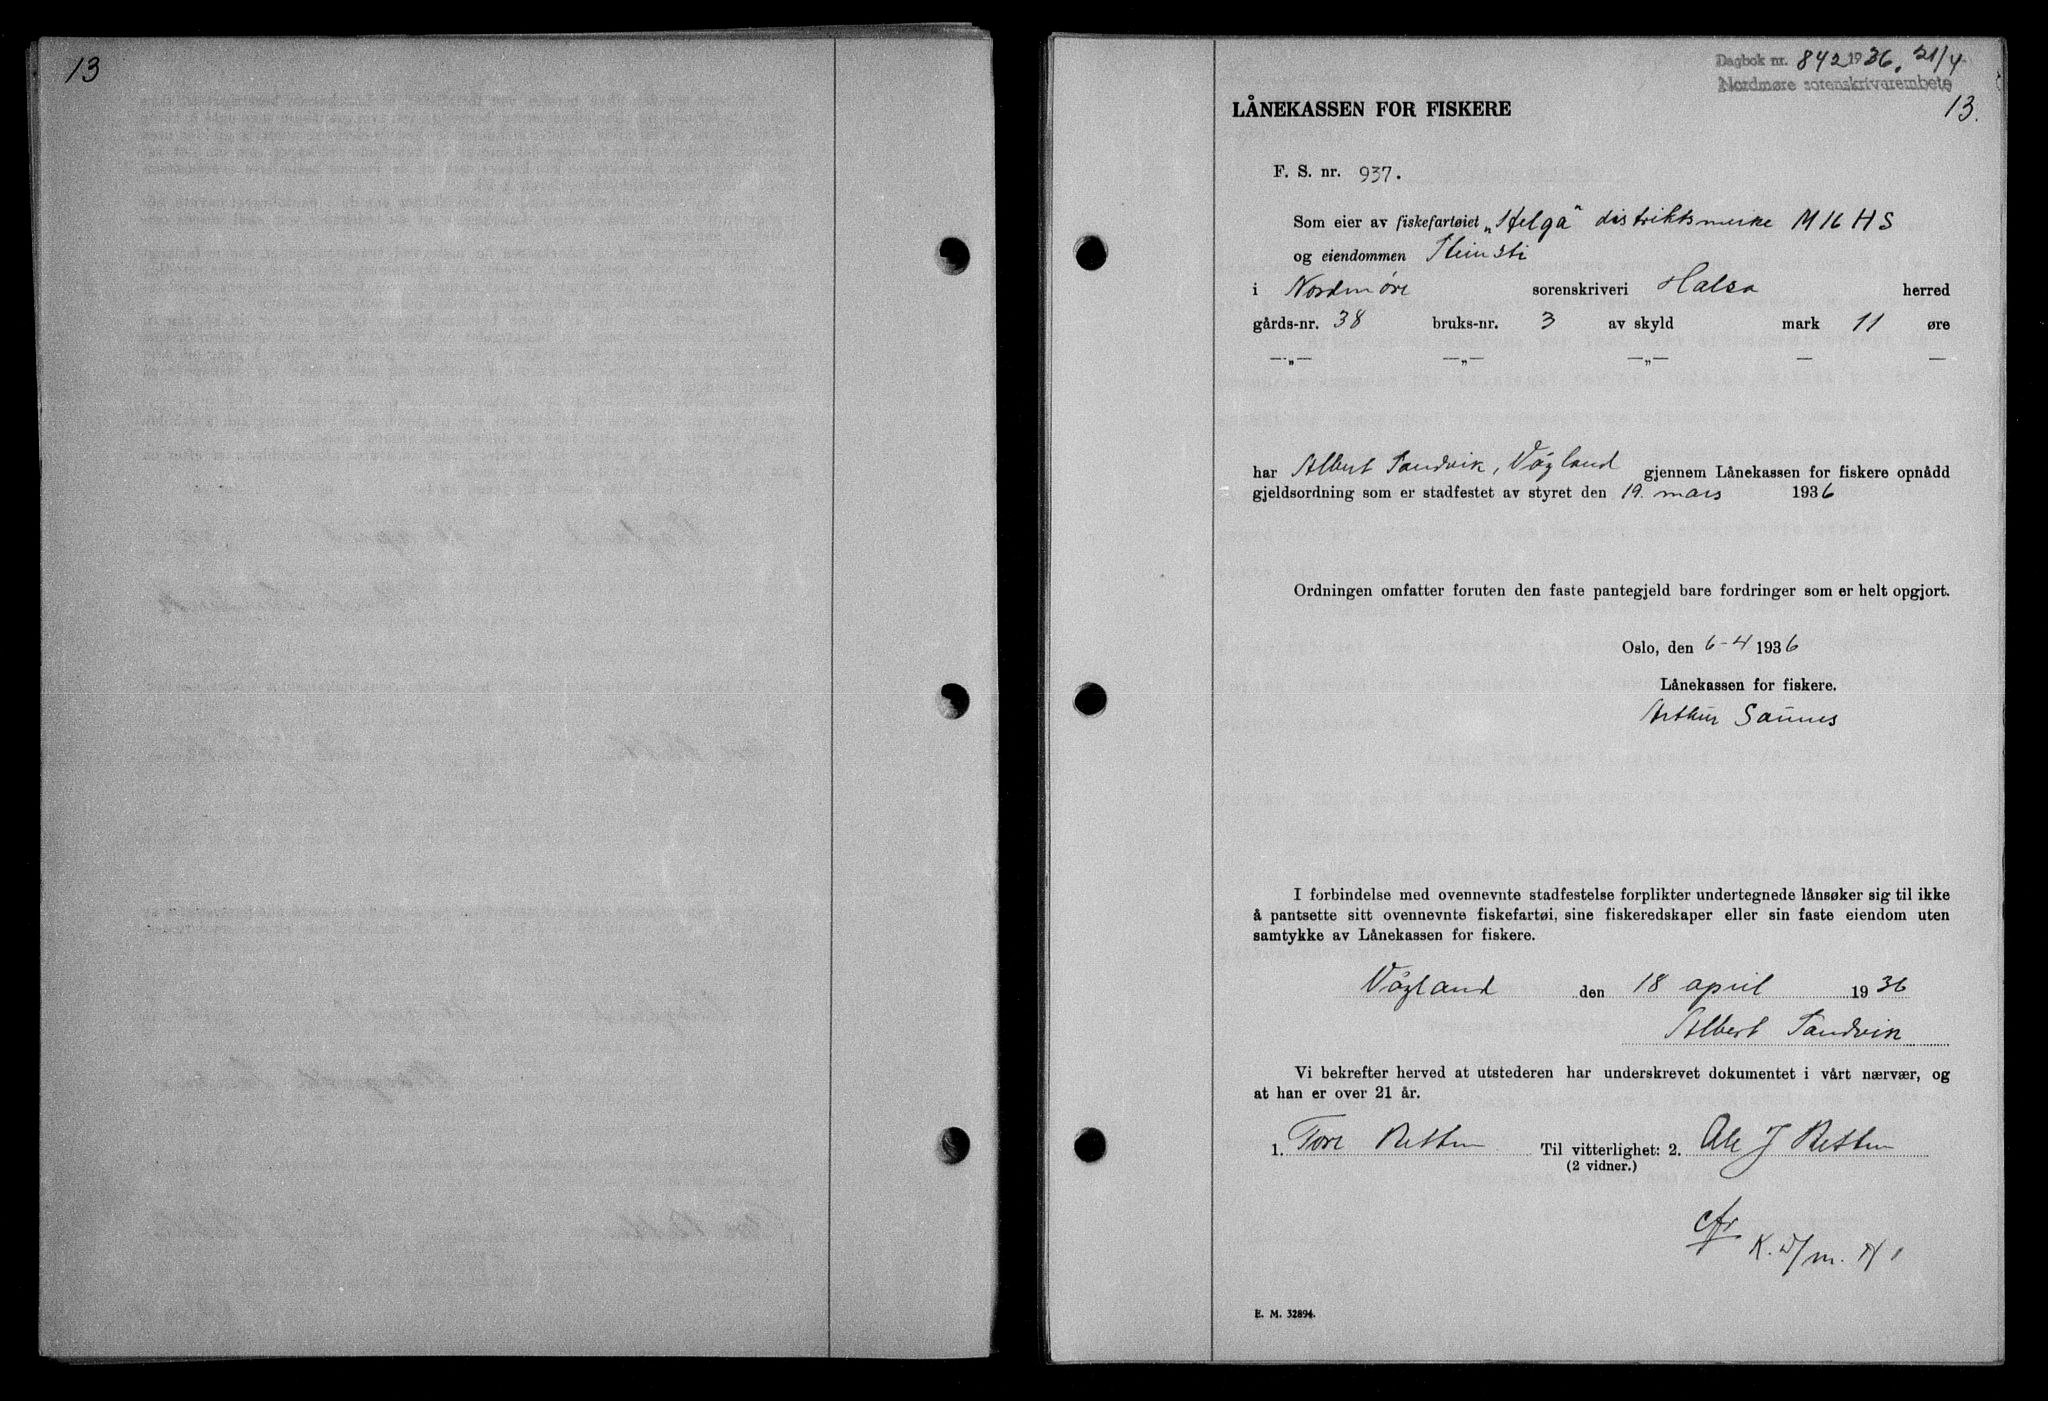 13
Dagbok nr. 842 1936. 21/4
Nordmøre sorenskrivarembete
13.
LÅNEKASSEN FOR FISKERE
F. S. nr. 937.
Som eier av fiskefartøiet „Helga" distriktsmerke M 16 HS
og eiendommen
i Nordmøre sorenskriveri Halsa herred
gårds-nr. 38 bruks-nr. 3 av skyld mark 11 øre
—„— —„— —„— — —
har Albert Sandvik, Vågland gjennem Lånekassen for fiskere opnådd
gjeldsordning som er stadfestet av styret den 19. mars 1936
Ordningen omfatter foruten den faste pantegjeld bare fordringer som er helt opgjort.
Oslo, den 6-4 1936
Lånekassen for fiskere.
Arthur Saunes
I forbindelse med ovennevnte stadfestelse forplikter undertegnede lånsøker sig til ikke
å pantsette sitt ovennevnte fiskefartøi, sine fiskeredskaper eller sin faste eiendom uten
samtykke av Lånekassen for fiskere.
Vågland den 18 april 1936
Albert Sandvik
Vi bekrefter herved at utstederen har underskrevet dokumentet i vårt nærvær, og
at han er over 21 år.
1. Tore Betten Til vitterlighet: 2. Ole J Betten
(2 vidner.)
cfr
E. M. 32894.